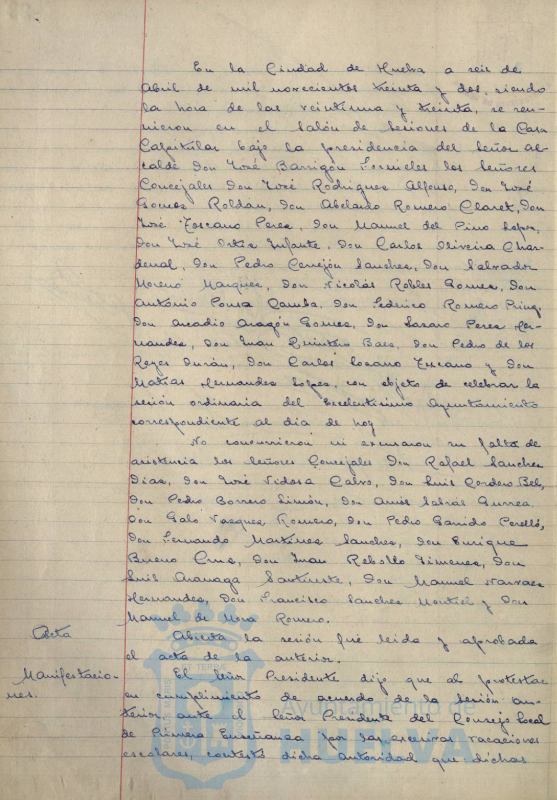 En la Ciudad de Huelva a seis de
Abril de mil novecientos treinta y dos, siendo
la hora de las veintiuna y treinta, se reu-
nieron en el salón de sesiones de la Casa
Capitular bajo la presidencia del Señor Al-
calde Don José Barrigón Fornieles los señores
Concejales Don José Rodriguez Alfonso, Don José
Gomez Roldan, Don Abelardo Romero Claret, Don
José Toscano Perez, Don Manuel del Pino Lopez,
Don José Ortiz Infante, Don Carlos Oliveira Char-
denal, Don Pedro Cerrejón Sanchez, Don Salvador
Moreno Marquez, Don Nicolás Robles Gomez, Don
Antonio Pousa Camba, Don Federico Romero
Don Arcadio Aragón Gomez, Don Lazaro Perez Her-
nandez, Don Juan Quintero Baez, Don Pedro de los
Reyes Durán, Don Carlos Lozano Toscano y Don
Matías Hernandez Lopez, con objeto de celebrar la
sesión ordinaria del Excelentísimo Ayuntamiento
correspondiente al día de hoy
No concurrieron ni excusaron su falta de
asistencia los señores Concejales Don Rafael Sanchez
Diaz, Don José Vidosa Calvo, Don Luis Cordero Bel,
Don Pedro Borrero Limón, Don Amós Sabrás Gurrea
Don Galo Vazquez Romero, Don Pedro Garrido Perelló,
Don Fernando Martinez Sanchez, Don Enrique
Bueno Cruz, Don Juan Rebollo Jimenez, Don
Luis Don Manuel Narvaez
Hernandez, Don Francisco Sanchez Montiel y Don
Manuel de Mora Romero.
Acta
Abierta la sesión fué leida y aprobada
el acta de la anterior.
Manifestacio-
nes.
El Señor Presidente dijo que al protestar
en cumplimiento de acuerdo de la sesión an-
terior ante el Señor Presidente del Consejo local
de Primera Enseñanza por las excesivas vacaciones
escolares, contestó dicha autoridad que dichas
Ayuntamiento de
HUELVA